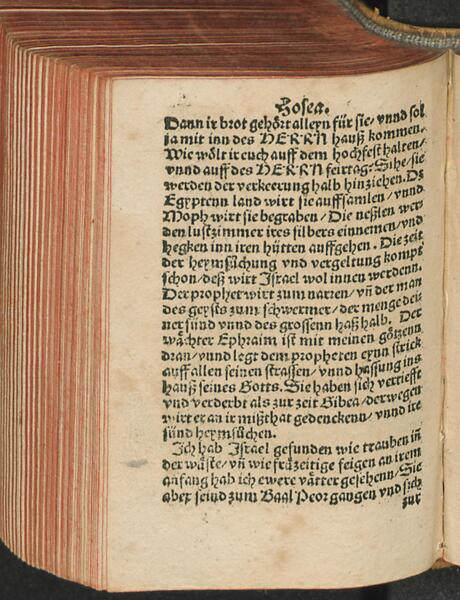 Hosea.
Dann ir brot gehört alleyn für sie/ vnnd sol
ja mit inn des HERRN hauß kommen.
Wie wölt ir euch auff dem hochfest halten/
vnnd auff des HERRN feirtag? Sihe/ sie
werden der verkeerung halb hinziehen. Dz
Egyptenn land wirt sie auffsamlen/ vnnd
Moph wirt sie begraben/ Die neßlen wer-
den lustzimmer ires silbers einnemen/ vnd
hegken inn iren hütten auffgehen. Die zeit
der heymsůchung vnd vergeltung kompt
schon/ deß wirt Israel wol innen werdenn.
Der prophet wirt zum narren/ vñ der man
des geysts zum schwermer/ der menge dei-
ner sünd vnnd des grossenn haß halb. Der
wächter Ephraim ist mit meinen götzenn
dran/ vnnd legt dem propheten eynn strick
auff allen seinen strassen/ vnnd hassung ins
hauß seines Gotts. Sie haben sich vertiefft
vnd verderbt als zur zeit Gibea/ derwegen
wirt er an ir mißthat gedenckenn/ vnnd ire
sünd heymsůchen.
Ich hab Israel gefunden wie trauben iñ
der wůste/ vñ wie frůzeitige feigen an irem
anfang hab ich ewere vätter gesehenn/ Sie
aber seind zum Baal Peor gangen vnd sich
zur